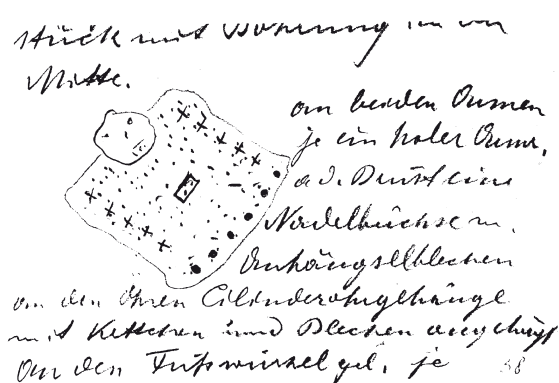 Stück mit Bohrung in der
Mitte.
an beiden Oumen
je ein hohler
a. d. Brust eine
Nadelbüchse m.
Anhängselblechen
an den Ohren Cilinderohrgehänge
mit Kettchen und Blechen
An den Fußwurzel gel. je